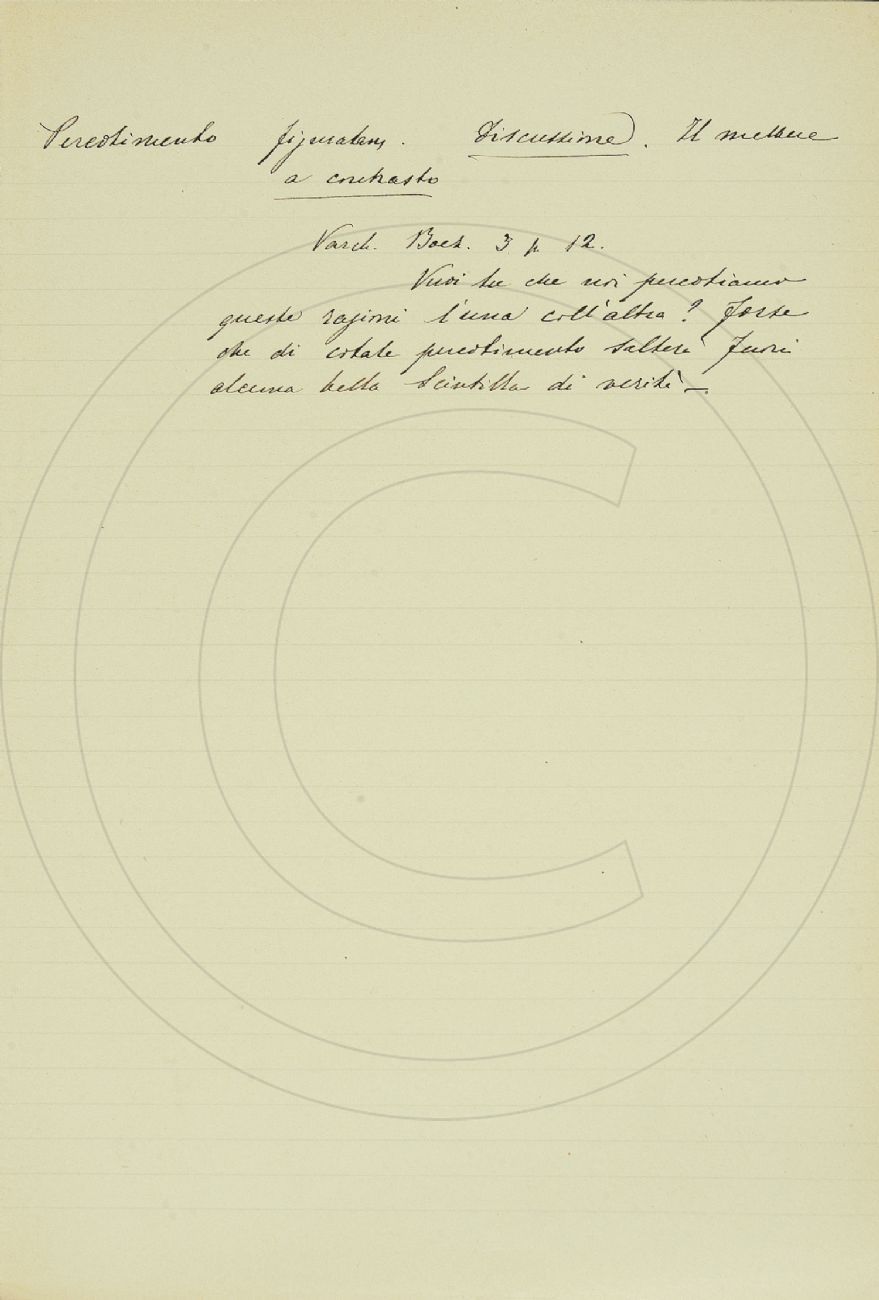 Percotimento figuratam. Discussione. Il mettere
a contrasto
Varch. Boez. 3 p 12.
Vuoi tu che noi percotiamo
queste ragioni l'una coll'altra? Forse
che di cotale percotimento salterà fuori
alcuna bella scintilla di verità —.